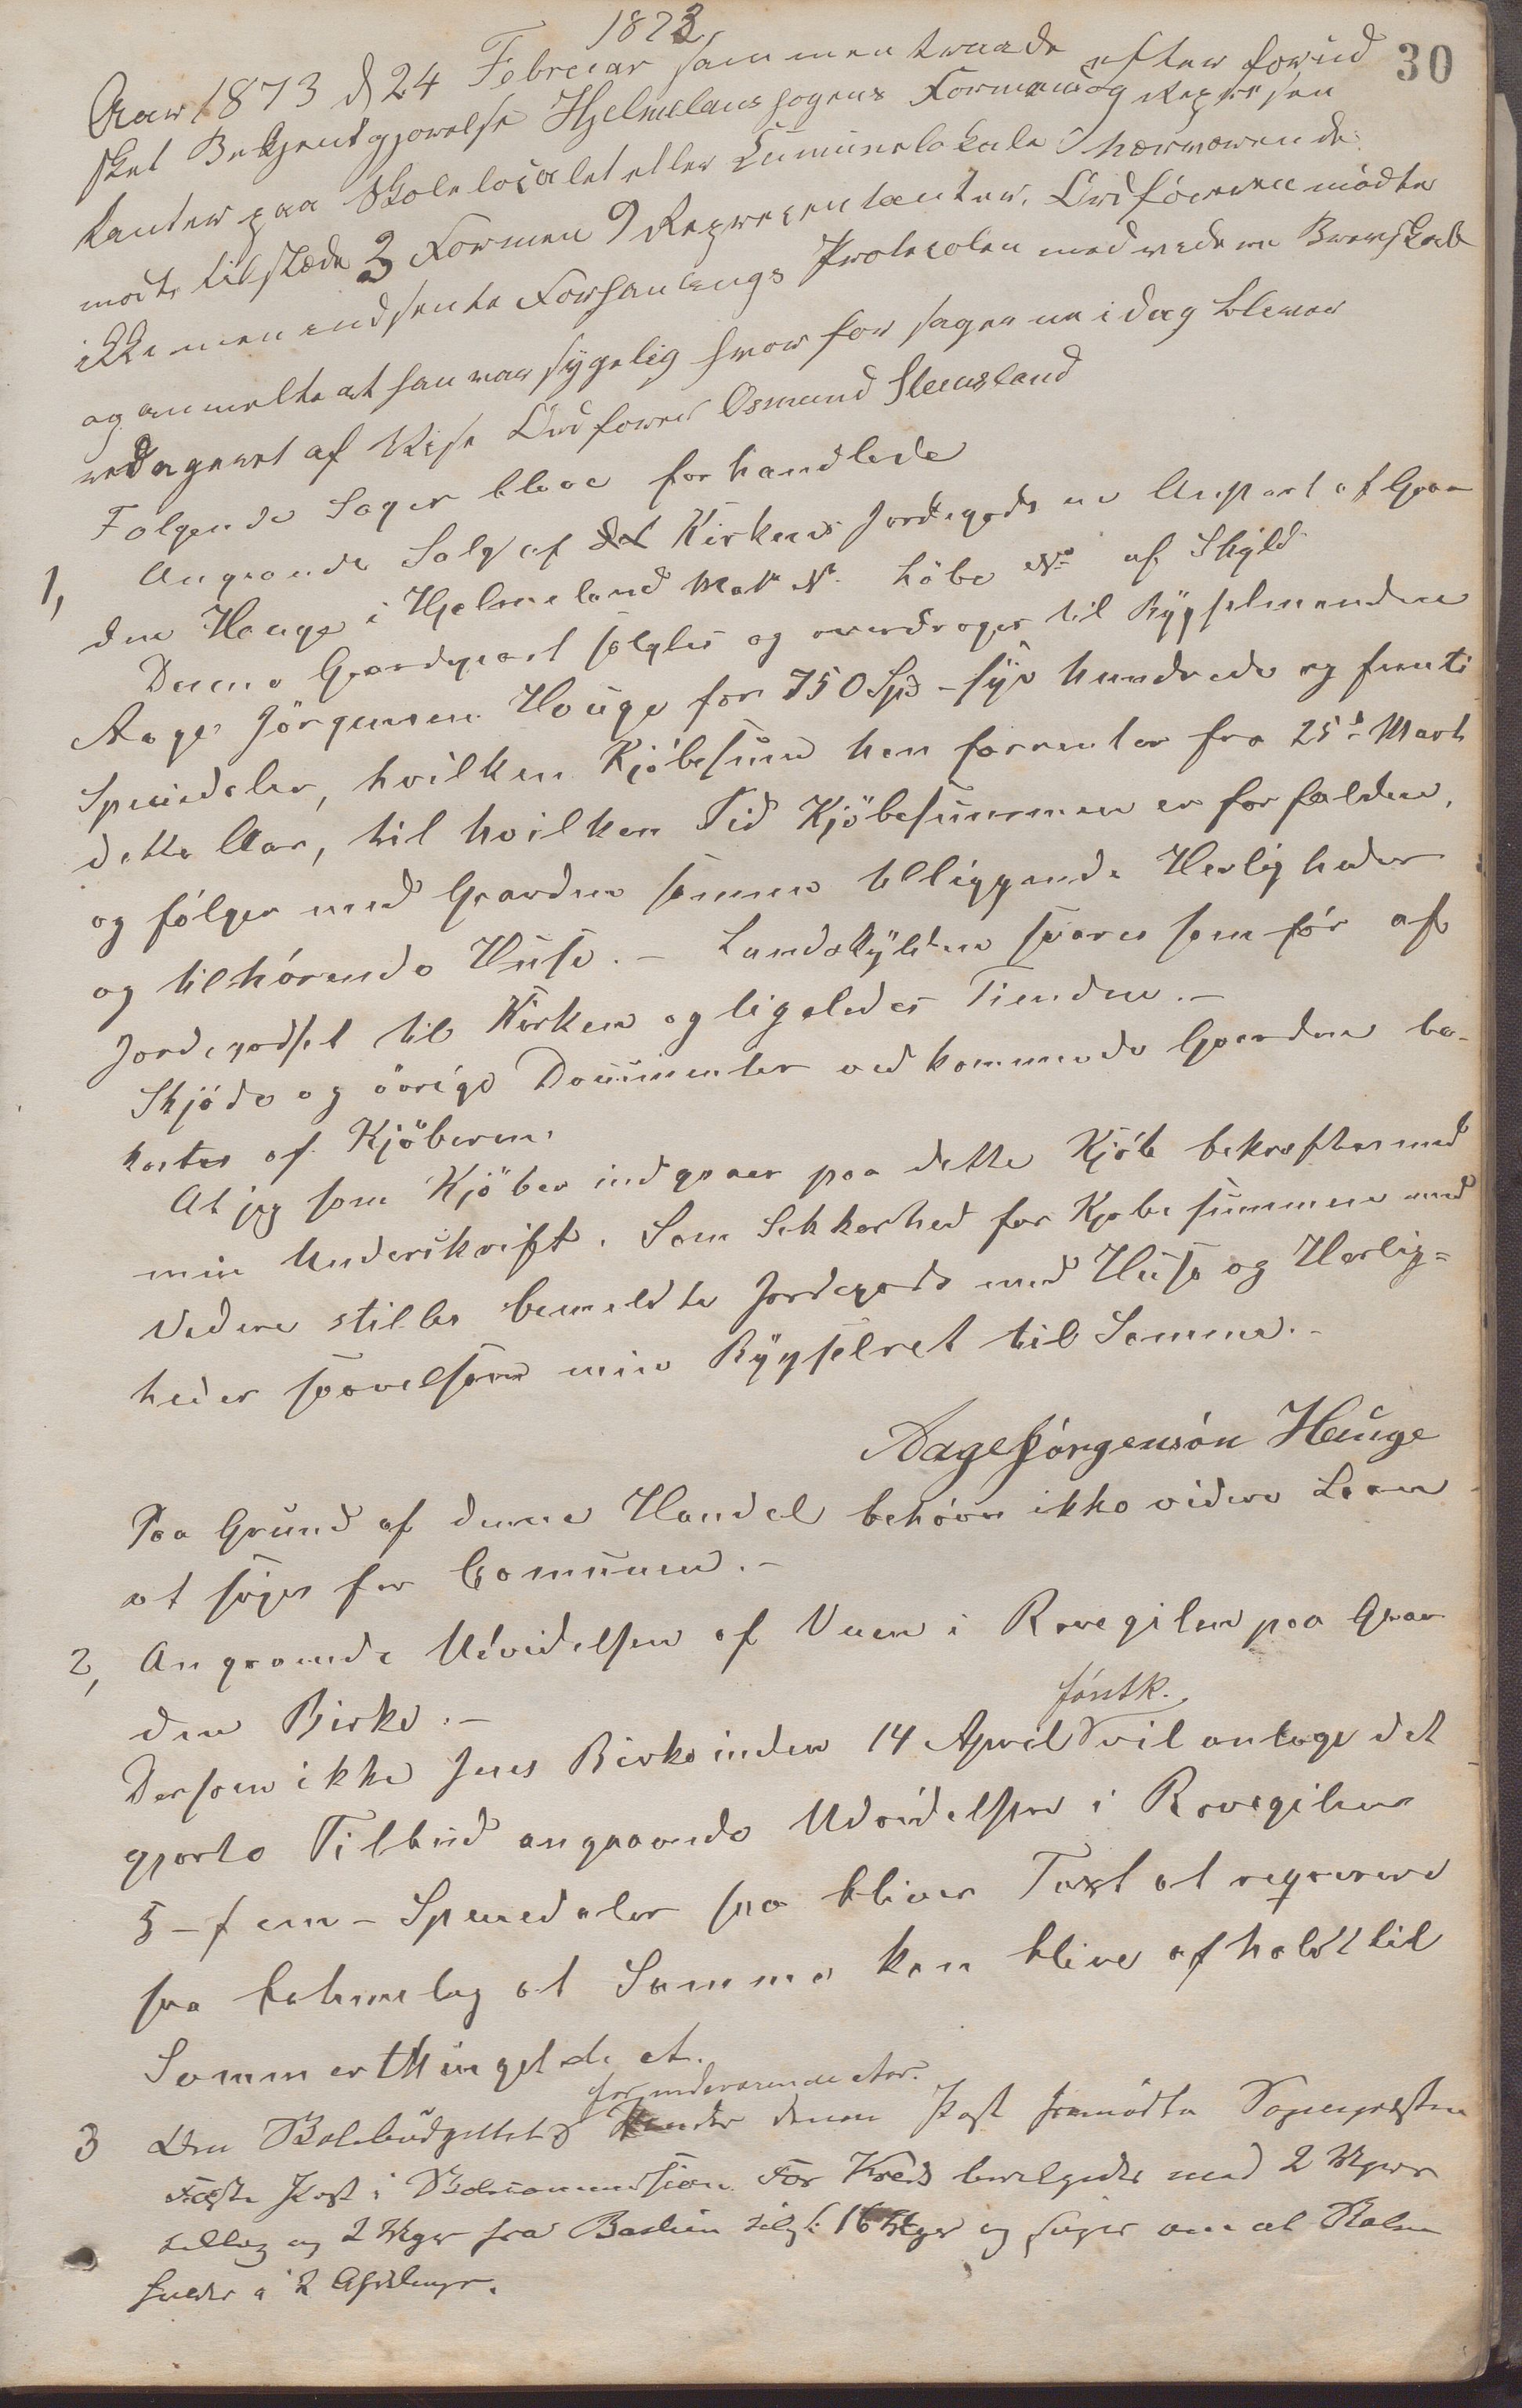 1873
30
Aar 1873 d 24 Februar sammentraade efter forud
sket Bekjentgjørelse Hjelmelans sogens Formen og Represen
tanter paa Skolelocalet eller Cumunelokale Nærværende
mødte tilstæde 3 Formen 9 Representanter. Ordføreren mødte
ikke men indsente Forhanlings Protocolen med videre Brevskab
og anmelte at han var sygelig hvor for sagerne i dag blever
redageret af Vise Ordforer Osmund Steensland
Følgende Sager bleve forhandlede
1, Angaaende Salg af Kirkens Jordegods en Anpart af Gaar
den Hauge i Hjelmeland Mat. N. Löbe No af Skyld
Denne Gaardpart sælges og overdrages til Bygselmanden
Aage Jörgensen Houge for 750 Spd - syv hundrede og femti
Speciedaler, hvilken Kjöbesum han forrenter fra 25de Marts
dette Aar, til hvilken Tid Kjöbesummen er forfalden,
og fölger med Gaarden samme tilliggende Herligheder
og tilhørende Huse. - Landskylden svares som för af
Jordegodset til Kirken og ligeledes Tienden. -
Skjöde og övrige Documenter vedkommende Gaarden be-
kostes af Kjöberen.
At jeg som Kjöber indgaaer paa dette Kjöb bekræftes med
min Underskrift. Som Sikkerhed for Kjøbesummen med
videre stilles bemeldte Jordegods med Huse og Herlig=
heder saavelsom min Bygselret til Samme. -
Aage Jörgensön Hauge
Paa Grund af denne Handel behöves ikke videre Laan
at söges for Comunen. -
2, Angaaende Udvidelsen af Veien i Rovegilen paa Gaar
den Birke. -
förstk.
Dersom ikke Jens Birke inden 14 April vil antage det
gjorte Tilbud angaaende Udvidelsen i Rovegilen
5 - fem - Speciedaler saa bliver Taxt at reqvirere
saa betimelig at Samme kan blive afholdt til
Sommerthinget d. A.
for indeværende Aar.
3 Om Skolebüdgettet Under denne Post fremmødte Sognepresten
første Post i Skolecommissionen For Kreds bevilgedes med 2 Uger
tillæg og 2 Uger fra 16 Uger og om at Skolen
holdes i 2 Afdelinger.